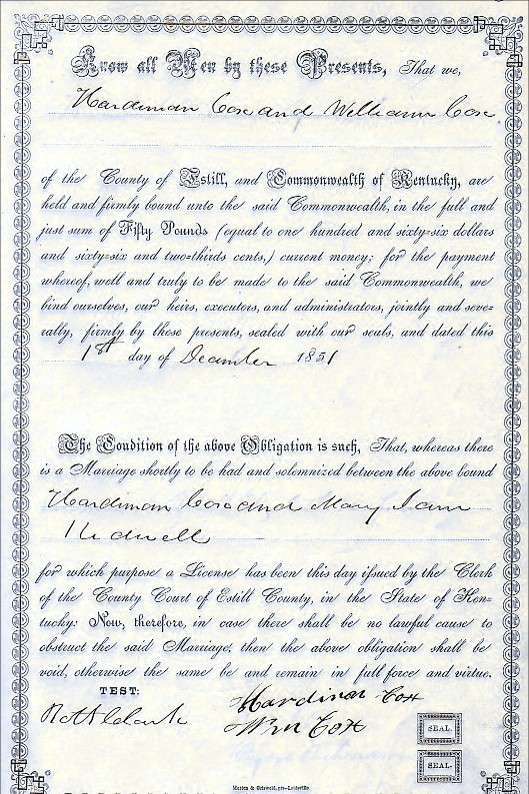 Know all Men by these Presents, That we,
Hardiman Cox and William Cox
of the County of Estill, and Commonwealth of Kentucky, are
held and firmly bound unto the said Commonwealth, in the full and
just sum of Fifty Pounds (equal to one hundred and sixty-six dollars
and sixty-six and two-thirds cents,) current money; for the payment
whereof, well and truly to be made to the said Commonwealth, we
bind ourselves, our heirs, executors, and administrators, jointly and seve-
rally, firmly by these presents, sealed with our seals, and dated this
1st day of December 1851
The Condition of the above Obligation is such, That, whereas there
is a Marriage shortly to be had and solemnized between the above bound
Hardiman Cox and Mary Jane
for which purpose a License has been this day issued by the Clerk
of the County Court of Estill County, in the State of Ken-
tucky: Now, therefore, in case there shall be no lawful cause to
obstruct the said Marriage, then the above obligation shall be
void, otherwise the same be and remain in full force and virtue.
TEST:
Hardiman Cox
Wm Cox
SEAL.
SEAL.